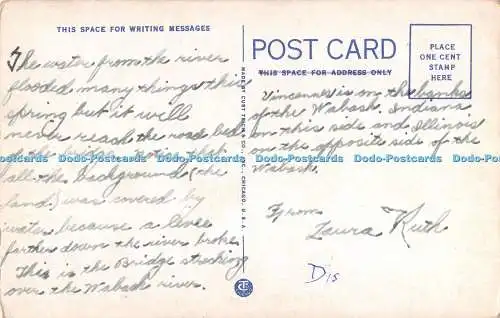 THIS SPACE FOR WRITING MESSAGES
The water from the river
flooded many things this
spring but it will
never reach the road bed
of the bridge. Notice that
all the background (the
land) was covered by
water because a levee
farther down the river broke.
This is the Bridge streching
over the Wabash river.
MADE BY CURT TEICH & CO., INC., CHICAGO, U.S.A.
POST CARD
THIS SPACE FOR ADDRESS ONLY
PLACE
ONE CENT
STAMP
HERE
Vincennes is on the banks
of the Wabash, Indiana
on this side and Illinois
on the opposite side of the
Wabash.
From
Laura Ruth
Dis
Dodo-Postcards Dodo-Postcards Dodo-Postcards Dodo-Postcards Dodo-Postcards